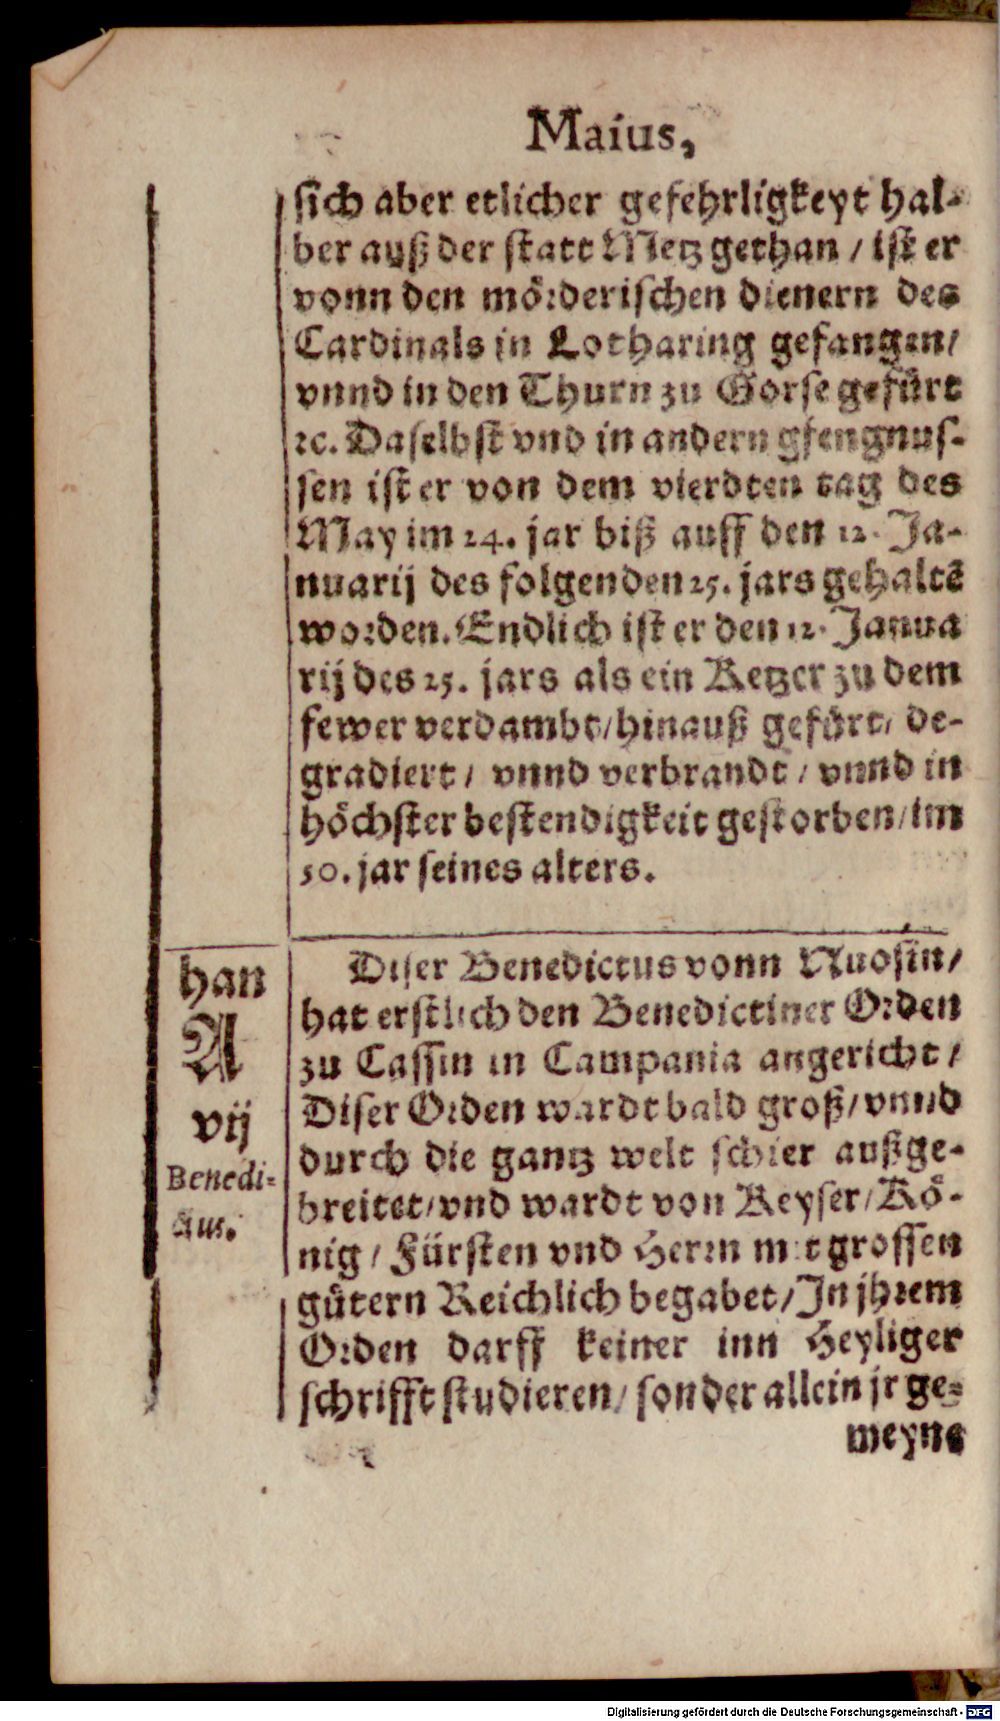 Maius,
sich aber etlicher gefehrligkeyt hal-
ber auß der statt Metz gethan / ist er
vonn den mörderischen dienern des
Cardinals in Lotharing gefangen/
vnnd in den Thurn zu Gorse gefürt
ꝛc. Daselbst vnd in andern gfengnus-
sen ist er von dem vierdten tag des
May im 24. jar biß auff den 12. Ja-
nuarij des folgenden 25. jars gehaltē
worden. Endlich ist er den 12. Janua
rij des 25. jars als ein Ketzer zu dem
fewer verdambt/hinauß gefürt/ de-
gradiert / vnnd verbrandt / vnnd in
höchster bestendigkeit gestorben/im
50. jar seines alters.
Diser Benedictus vonn Nuosin/
hat erstlich den Benedictiner Orden
zu Cassin in Campania angericht /
Diser Orden wardt bald groß/vnnd
durch die gantz welt schier außge-
breitet/vnd wardt von Keyser/Kö-
nig / Fürsten vnd Herrn mit grossen
gütern Reichlich begabet/In jhrem
Orden darff keiner inn Heyliger
schrifft studieren/ sonder allein jr ge-
meyne
han
A
vij
Benedi-
ctus.
Digitalisierung gefördert durch die Deutsche Forschungsgemeinschaft - DFG